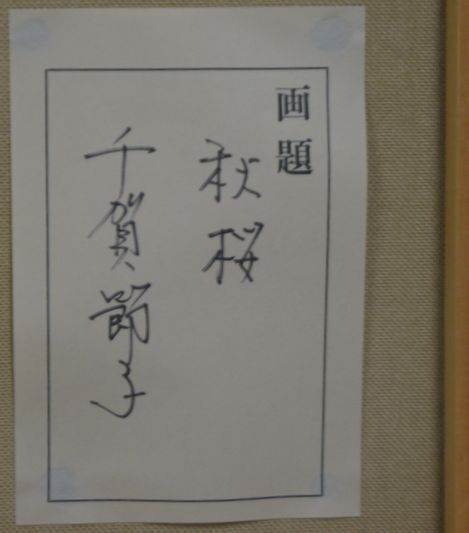 画題
秋桜
千賀節子